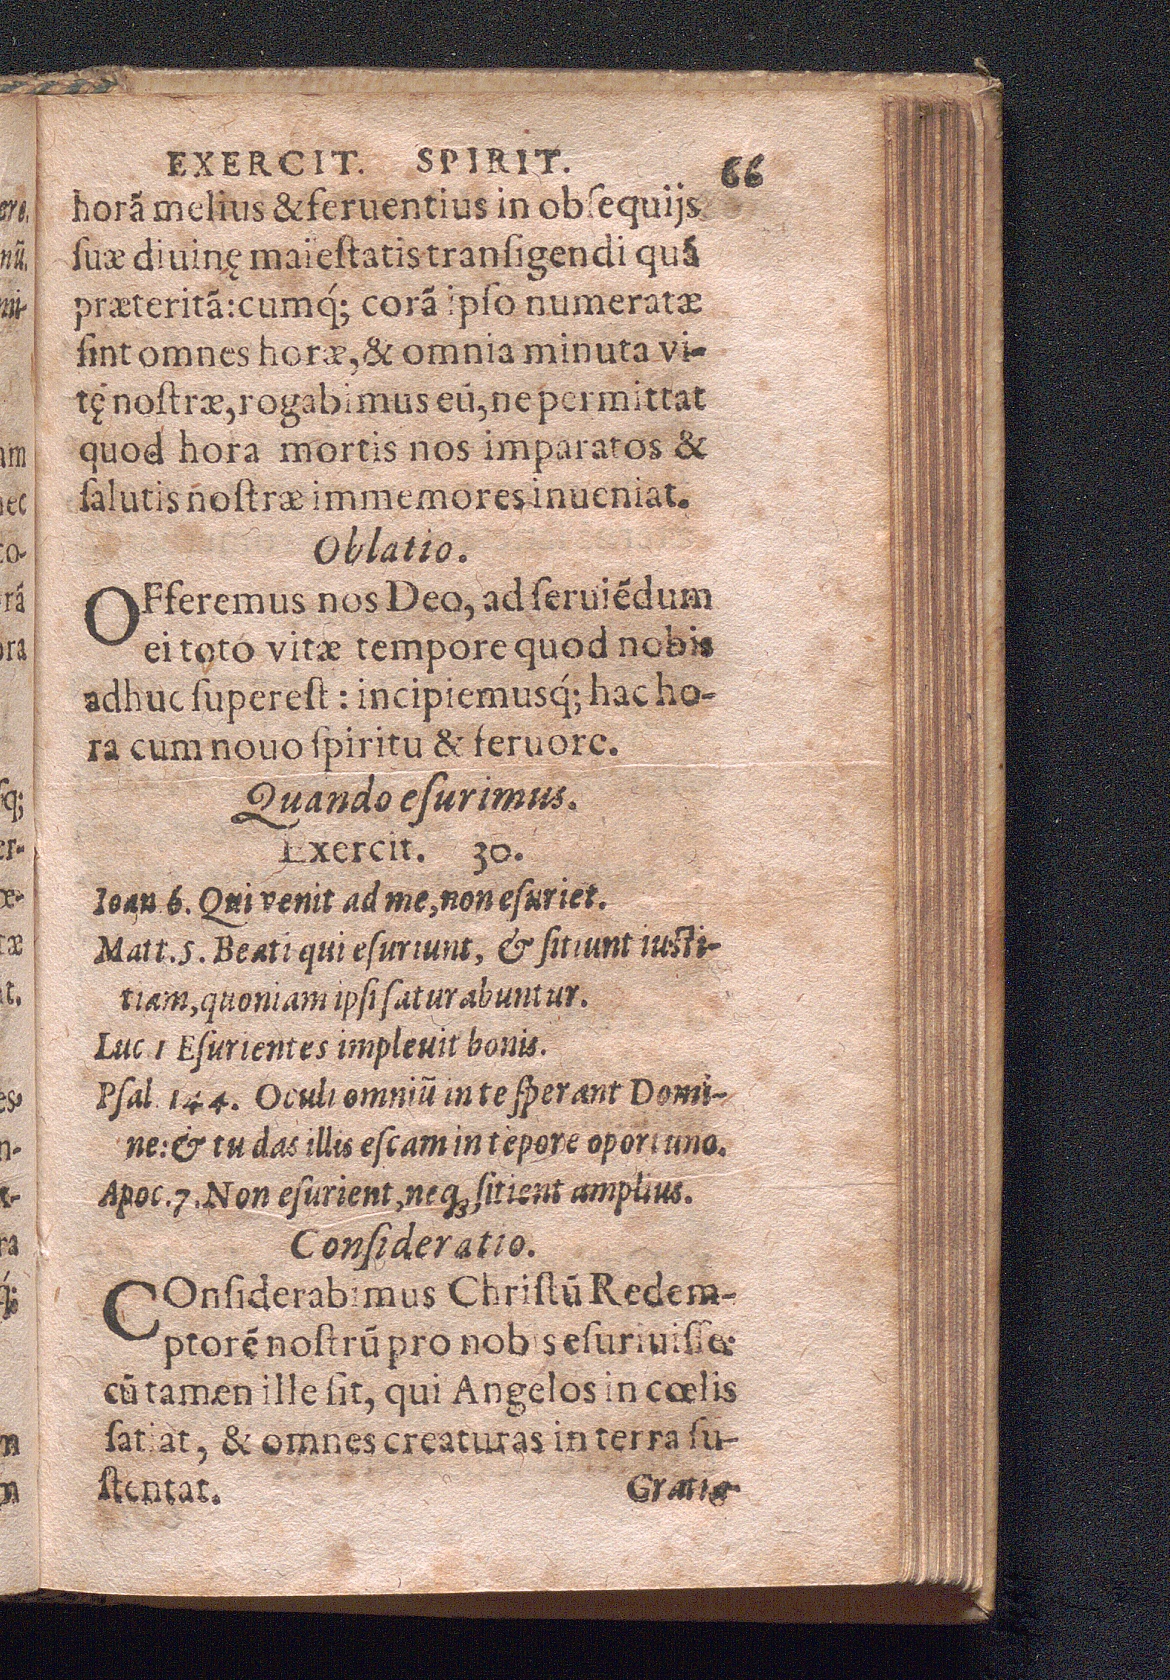 EXERCIT. SPIRIT. 66
horã melius & feruentius in obſequijs
ſuæ diuinę maieſtatis tranſigendi quã
præteritã: cumq́; corã ipſo numeratæ
ſint omnes horæ, & omnia minuta vi-
tę noſtræ, rogabimus eũ, ne permittat
quod hora mortis nos imparatos &
ſalutis noſtræ immemores inueniat.
Oblatio.
OFferemus nos Deo, ad ſeruiẽdum
ei toto vitæ tempore quod nobis
adhuc ſupereſt: incipiemusq́; hac ho-
ra cum nouo ſpiritu & feruore.
Quando eſurimus.
Exercit. 30.
Ioan 6. Qui venit ad me, non eſuriet.
Matt. 5. Beati qui eſuriunt, & ſitiunt iuſti-
tiam, quoniam ipſi ſaturabuntur.
Luc 1 Eſurientes impleuit bonis.
Pſal 144. Oculi omniũ in te ſperant Domi-
ne: & tu das illis eſcam in tẽpore oportuno.
Apoc. 7. Non eſurient, neqꝫ ſitient amplius.
Conſideratio.
COnſiderabimus Chriſtũ Redem-
ptorẽ noſtrũ pro nobis eſuriuiſſe:
cũ tamen ille ſit, qui Angelos in cœlis
ſatiat, & omnes creaturas in terra ſu-
ſtentat. Gratia